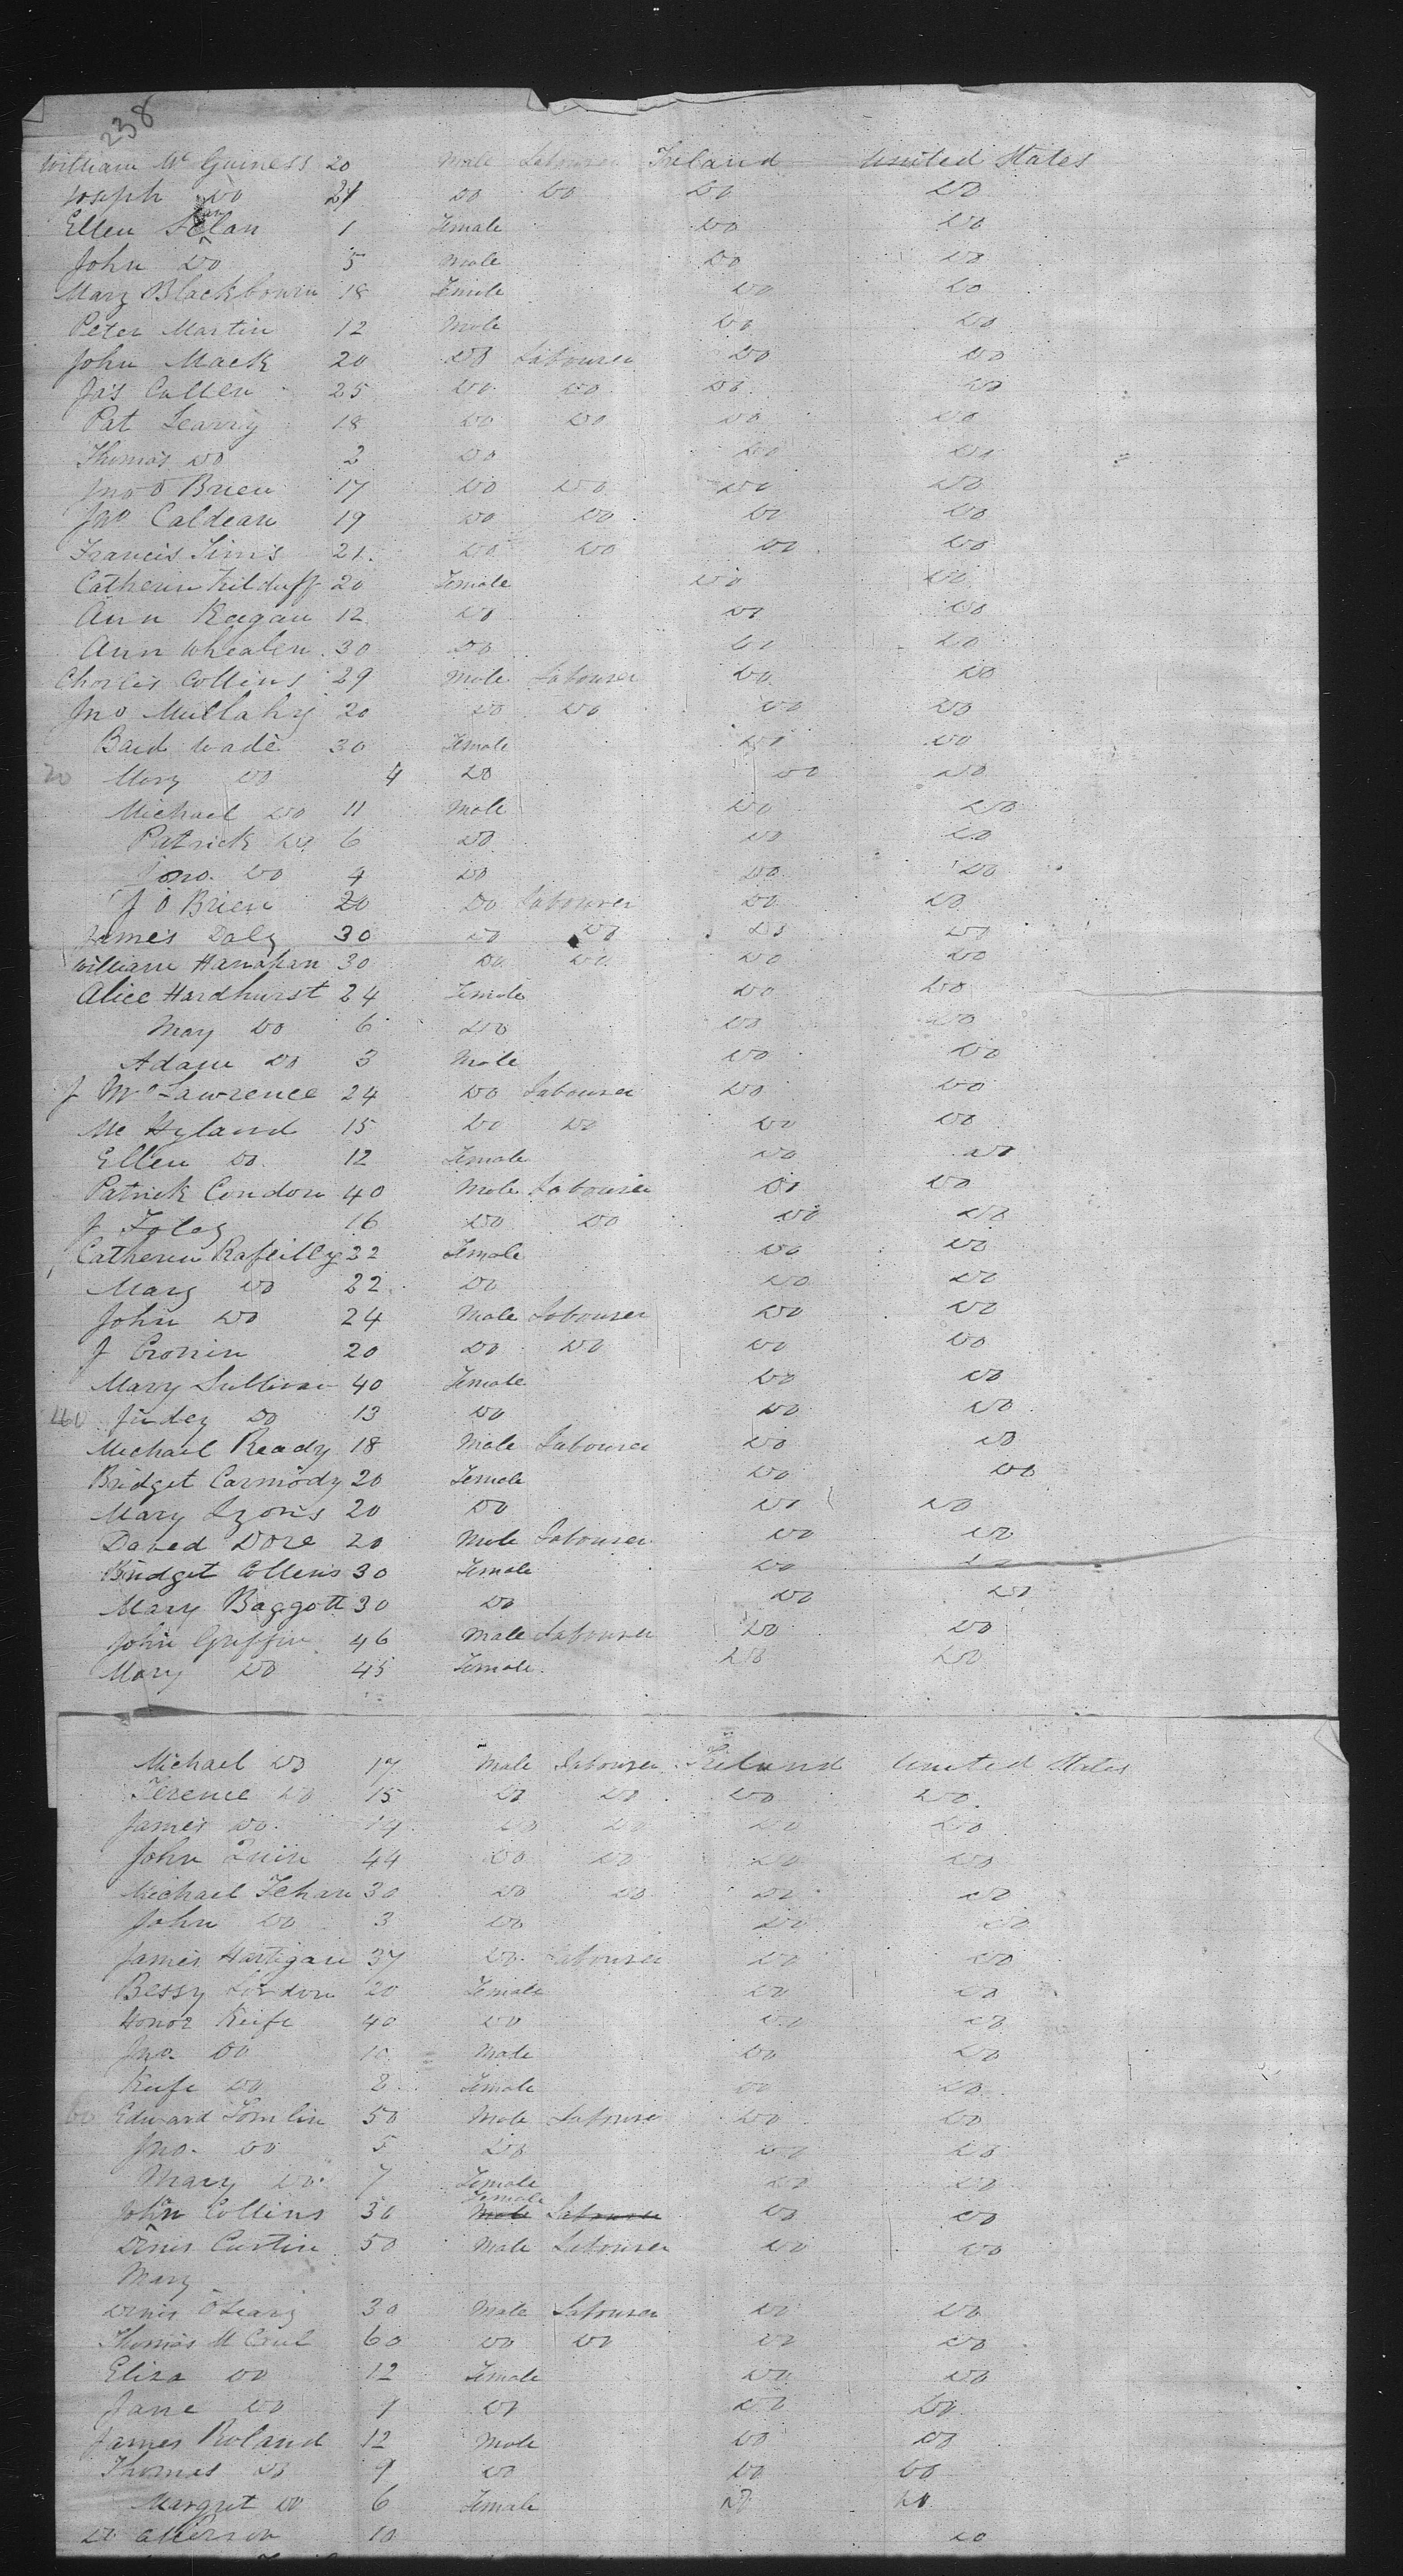 238
William Mc Guiness 20 Male Labourer Ireland United States
Joseph Do 21 Do Do Do Do
Ellen 1 Female Do Do
John Do 5 Male Do Do
Mary Blackbourn 18 Female Do Do
Peter Martin 12 Male Do Do
John Mack 20 Do Labourer Do Do
Jas Cullen 25 Do Do Do Do
Pat Learry 18 Do Do Do Do
Thomas Do 2 Do Do Do
Jno O Brien 17 Do Do Do Do
Jno Caldean 19 Do Do Do Do
Francis Sims 21 Do Do Do Do
Catherin Kilduff 20 Female Do Do
Ann Keagan 12 Do Do Do
Ann Whealen 30 Do Do Do
Charles Collins 29 Male Labourer Do Do
Jno Mullahy 20 Do Do Do Do
Wade 30 Female Do Do
20 Mary Do 4 Do Do Do
Michael Do 11 Male Do Do
Patrick Do 6 Do Do Do
Jno. Do 4 Do Do Do
J O Brien 20 Do Labourer Do Do
James Daly 30 Do Do Do Do
William Hanahan 30 Do Do Do Do
Alice Hardhurst 24 Female Do Do
May Do 6 Do Do Do
Adam Do 3 Male Do Do
J Mc Lawrence 24 Do Labourer Do Do
Mc Hyland 15 Do Do Do Do
Ellen Do 12 Female Do Do
Patrick Condon 40 Male Labourer Do Do
J Foley 16 Do Do Do Do
Catheren 22 Female Do Do
Mary Do 22 Do Do Do
John Do 24 Male Labourer Do Do
J Cronin 20 Do Do Do Do
Mary Sullivan 40 Female Do Do
40 Judey Do 13 Do Do Do
Michael Ready 18 Male Labourer Do Do
Bridget Carmody 20 Female Do Do
Mary Lyons 20 Do Do Do
Daved Dore 20 Male Labourer Do Do
Bridget Collens 30 Female Do Do
Mary Baggott 30 Do Do Do
John Griffin 46 Male Labourer Do Do
Mary Do 45 Female Do Do
Michael Do 17 Male Labourer Ireland United States
Terence Do 15 Do Do Do Do
James Do 14 Do Do Do Do
John Quin 44 Do Do Do Do
Michael Fehan 30 Do Do Do Do
John Do 3 Do Do Do
James Hartigan 37 Do Labourer Do Do
Bessy 20 Female Do Do
Honor Keife 40 Do Do Do
Jno. Do 10 Male Do Do
Keefe Do 8 Female Do Do
60 Edward Tomlin 50 Male Labourer Do Do
Jno. Do 5 Do Do Do
Mary Do 7 Female Do Do
Female
Collins 30 Male Labourer Do Do
Denis Curtin 50 Male Labourer Do Do
Mary
Denis O Leary 30 Male Labourer Do Do
Thomas M Caul 60 Do Do Do Do
Eliza Do 12 Female Do Do
Jane Do 9 Do Do Do
James Roland 12 Male Do Do
Thomas Do 9 Do Do Do
Margret Do 6 Female Do Do
Do 10 Do